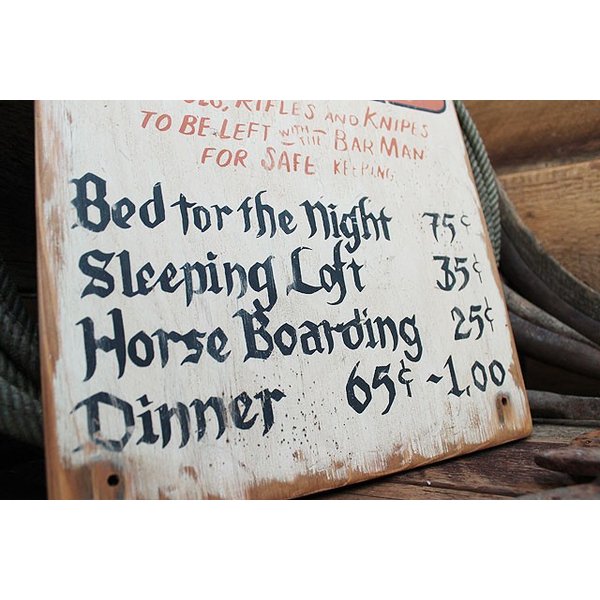 RIFLES AND KNIPES
TO BE LEFT WITH THE BAR MAN
FOR SAFE KEEPING
Bed for the Night 75¢
Sleeping Loft 35¢
Horse Boarding 25¢
Dinner 65¢ - 1.00